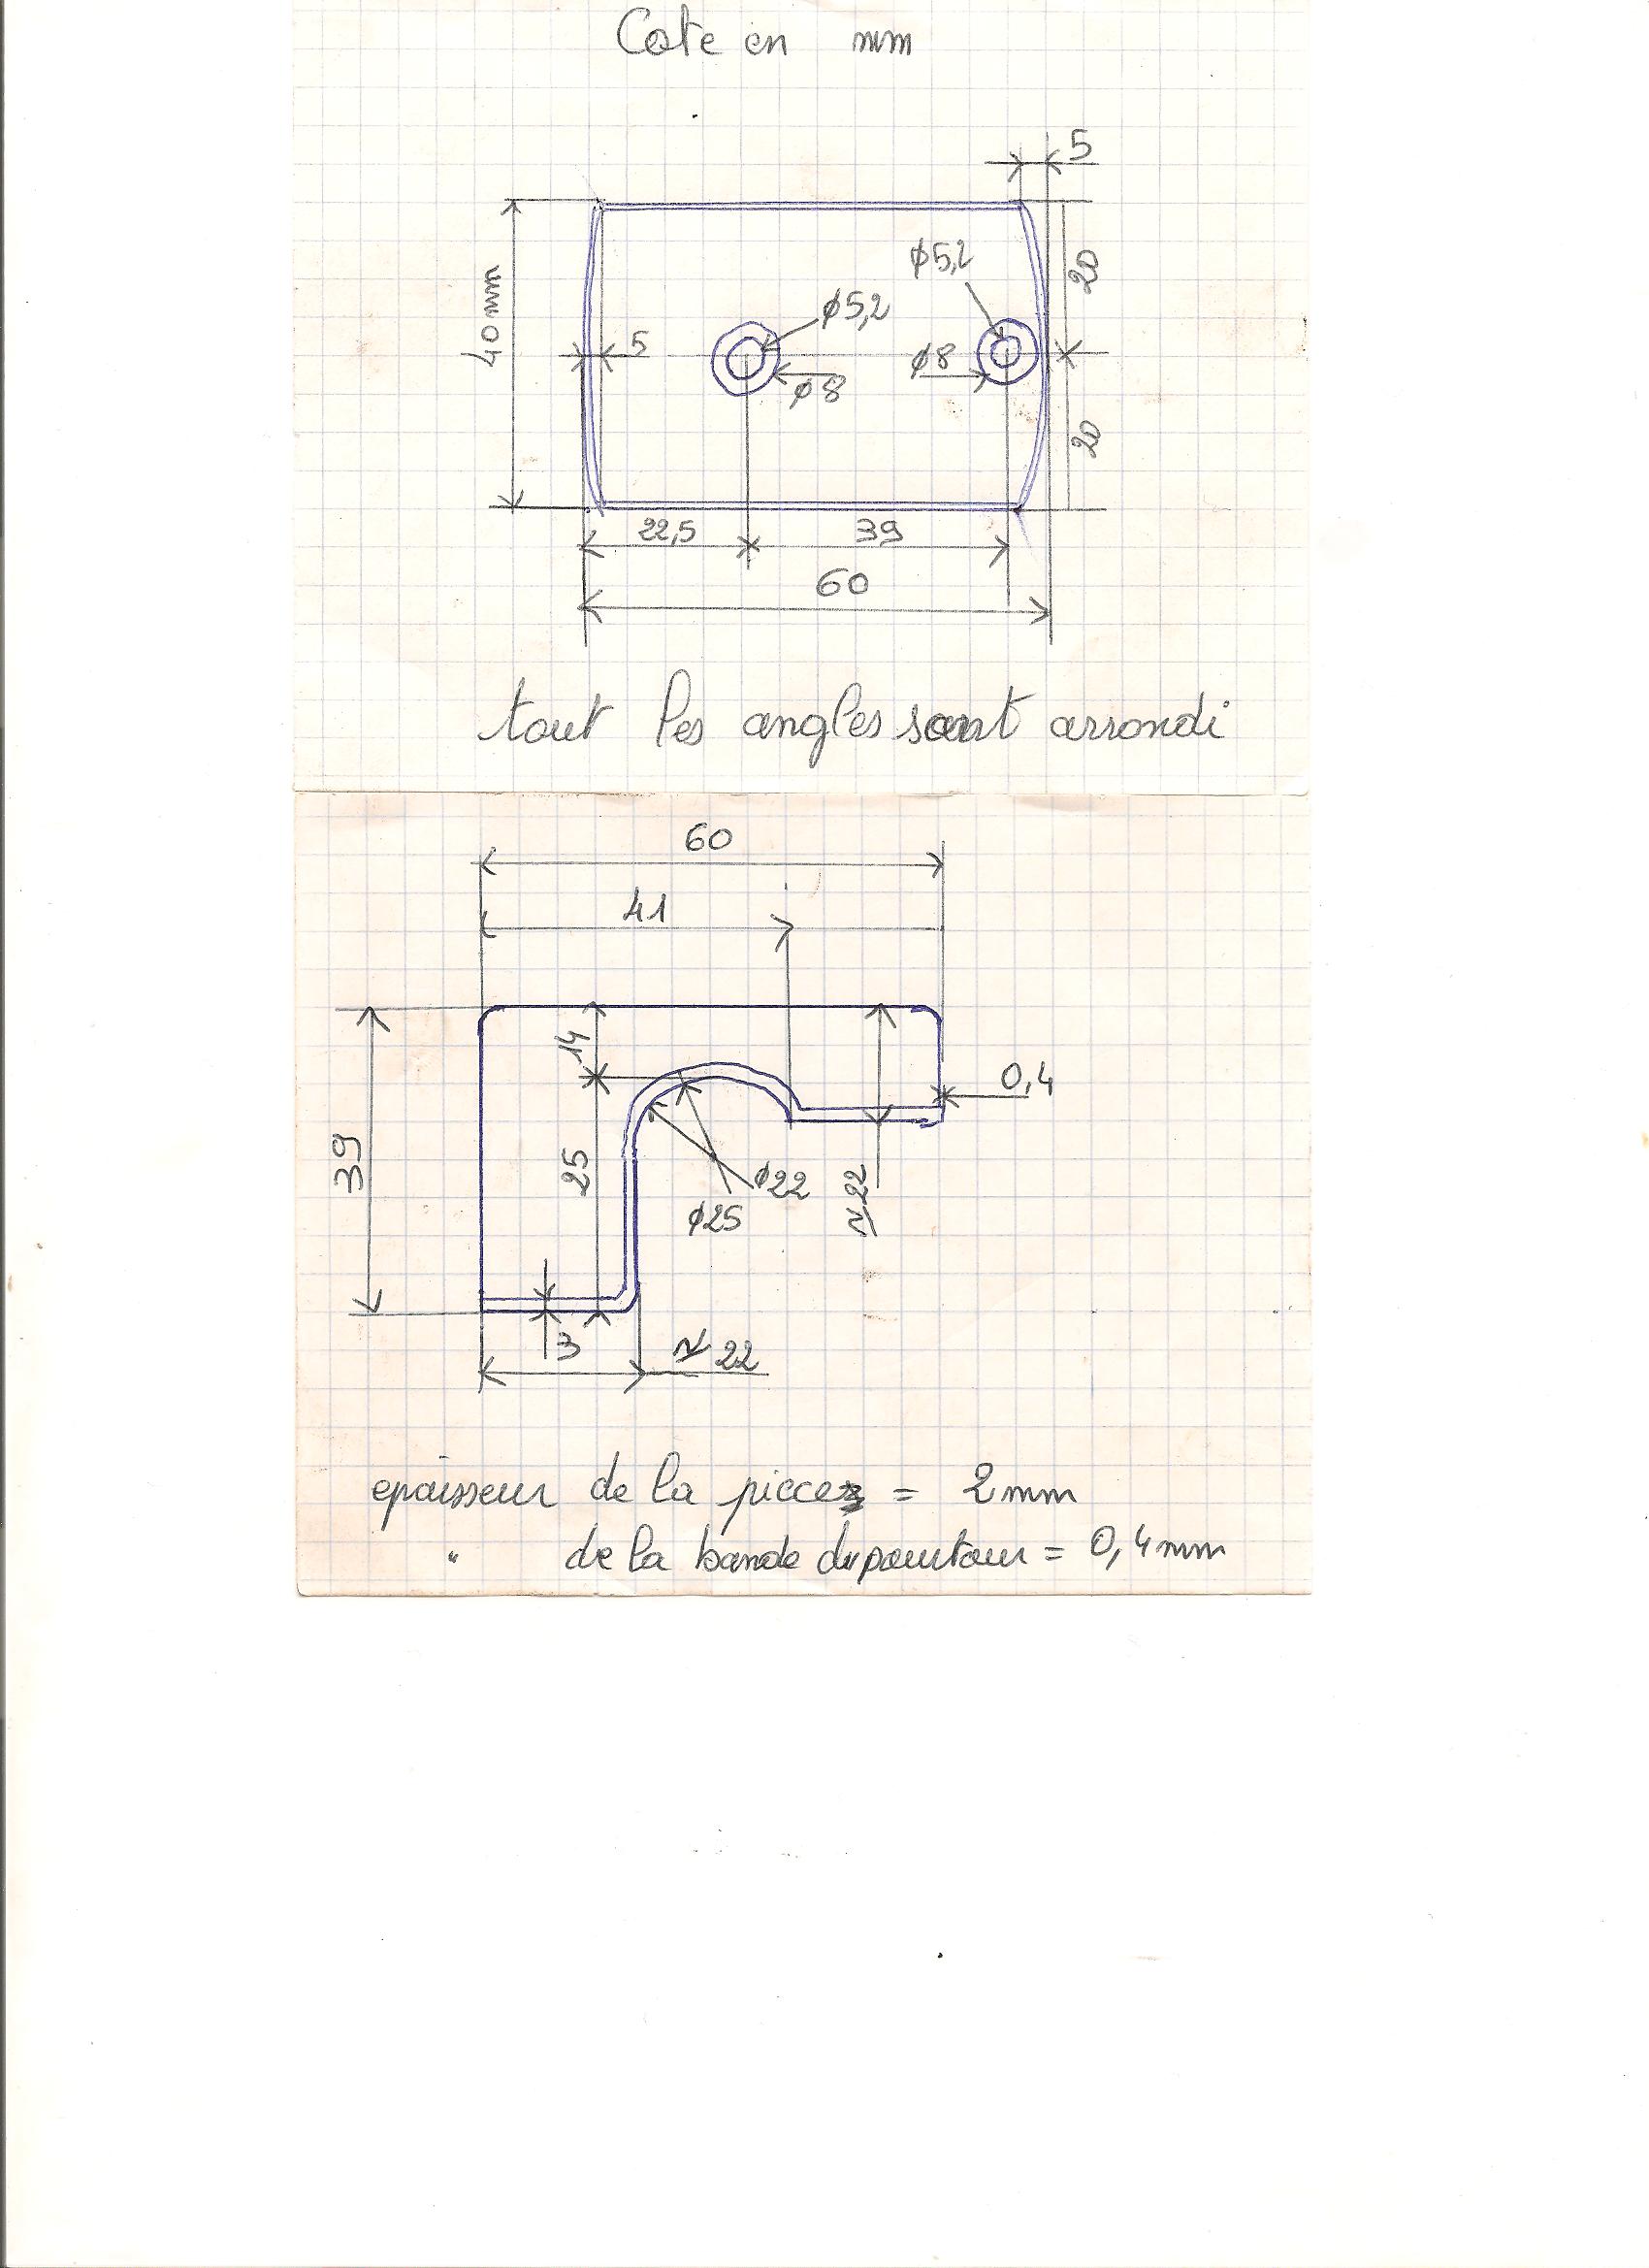 Cote en mm
5
φ5,2
20
40 mm
φ5,2
5
φ8
φ8
20
22,5
39
60
tout les angles sont arrondi
60
41
14
0,4
39
25
φ22
φ25
≈22
3
≈ 22
epaisseur de la piece = 2mm
" de la bande du pourtour = 0,4mm